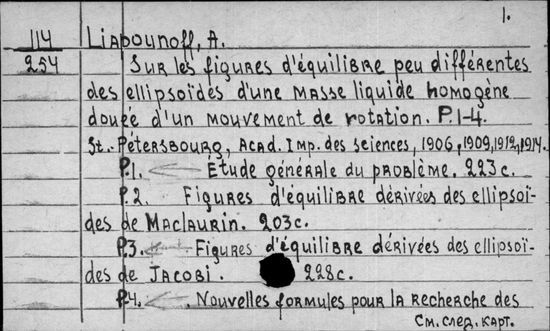 1.
114 Liapounoff, A.
254 Sur les figures d'équilibre peu différentes
des ellipsoïdes d'une masse liquide homogène
douée d'un mouvement de rotation. P.1-4.
St.-Pétersbourg, Acad. Imp. des sciences, 1906, 1909, 1912, 1914.
P.1. Étude générale du problème. 223 с.
P.2. Figures d'équilibre dérivées des ellipsoï-
des de Maclaurin. 203 с.
P.3. Figures d'équilibre dérivées des ellipsoï-
des de Jacobi. 228 с.
P.4. Nouvelles formules pour la recherche des
См. след. карт.